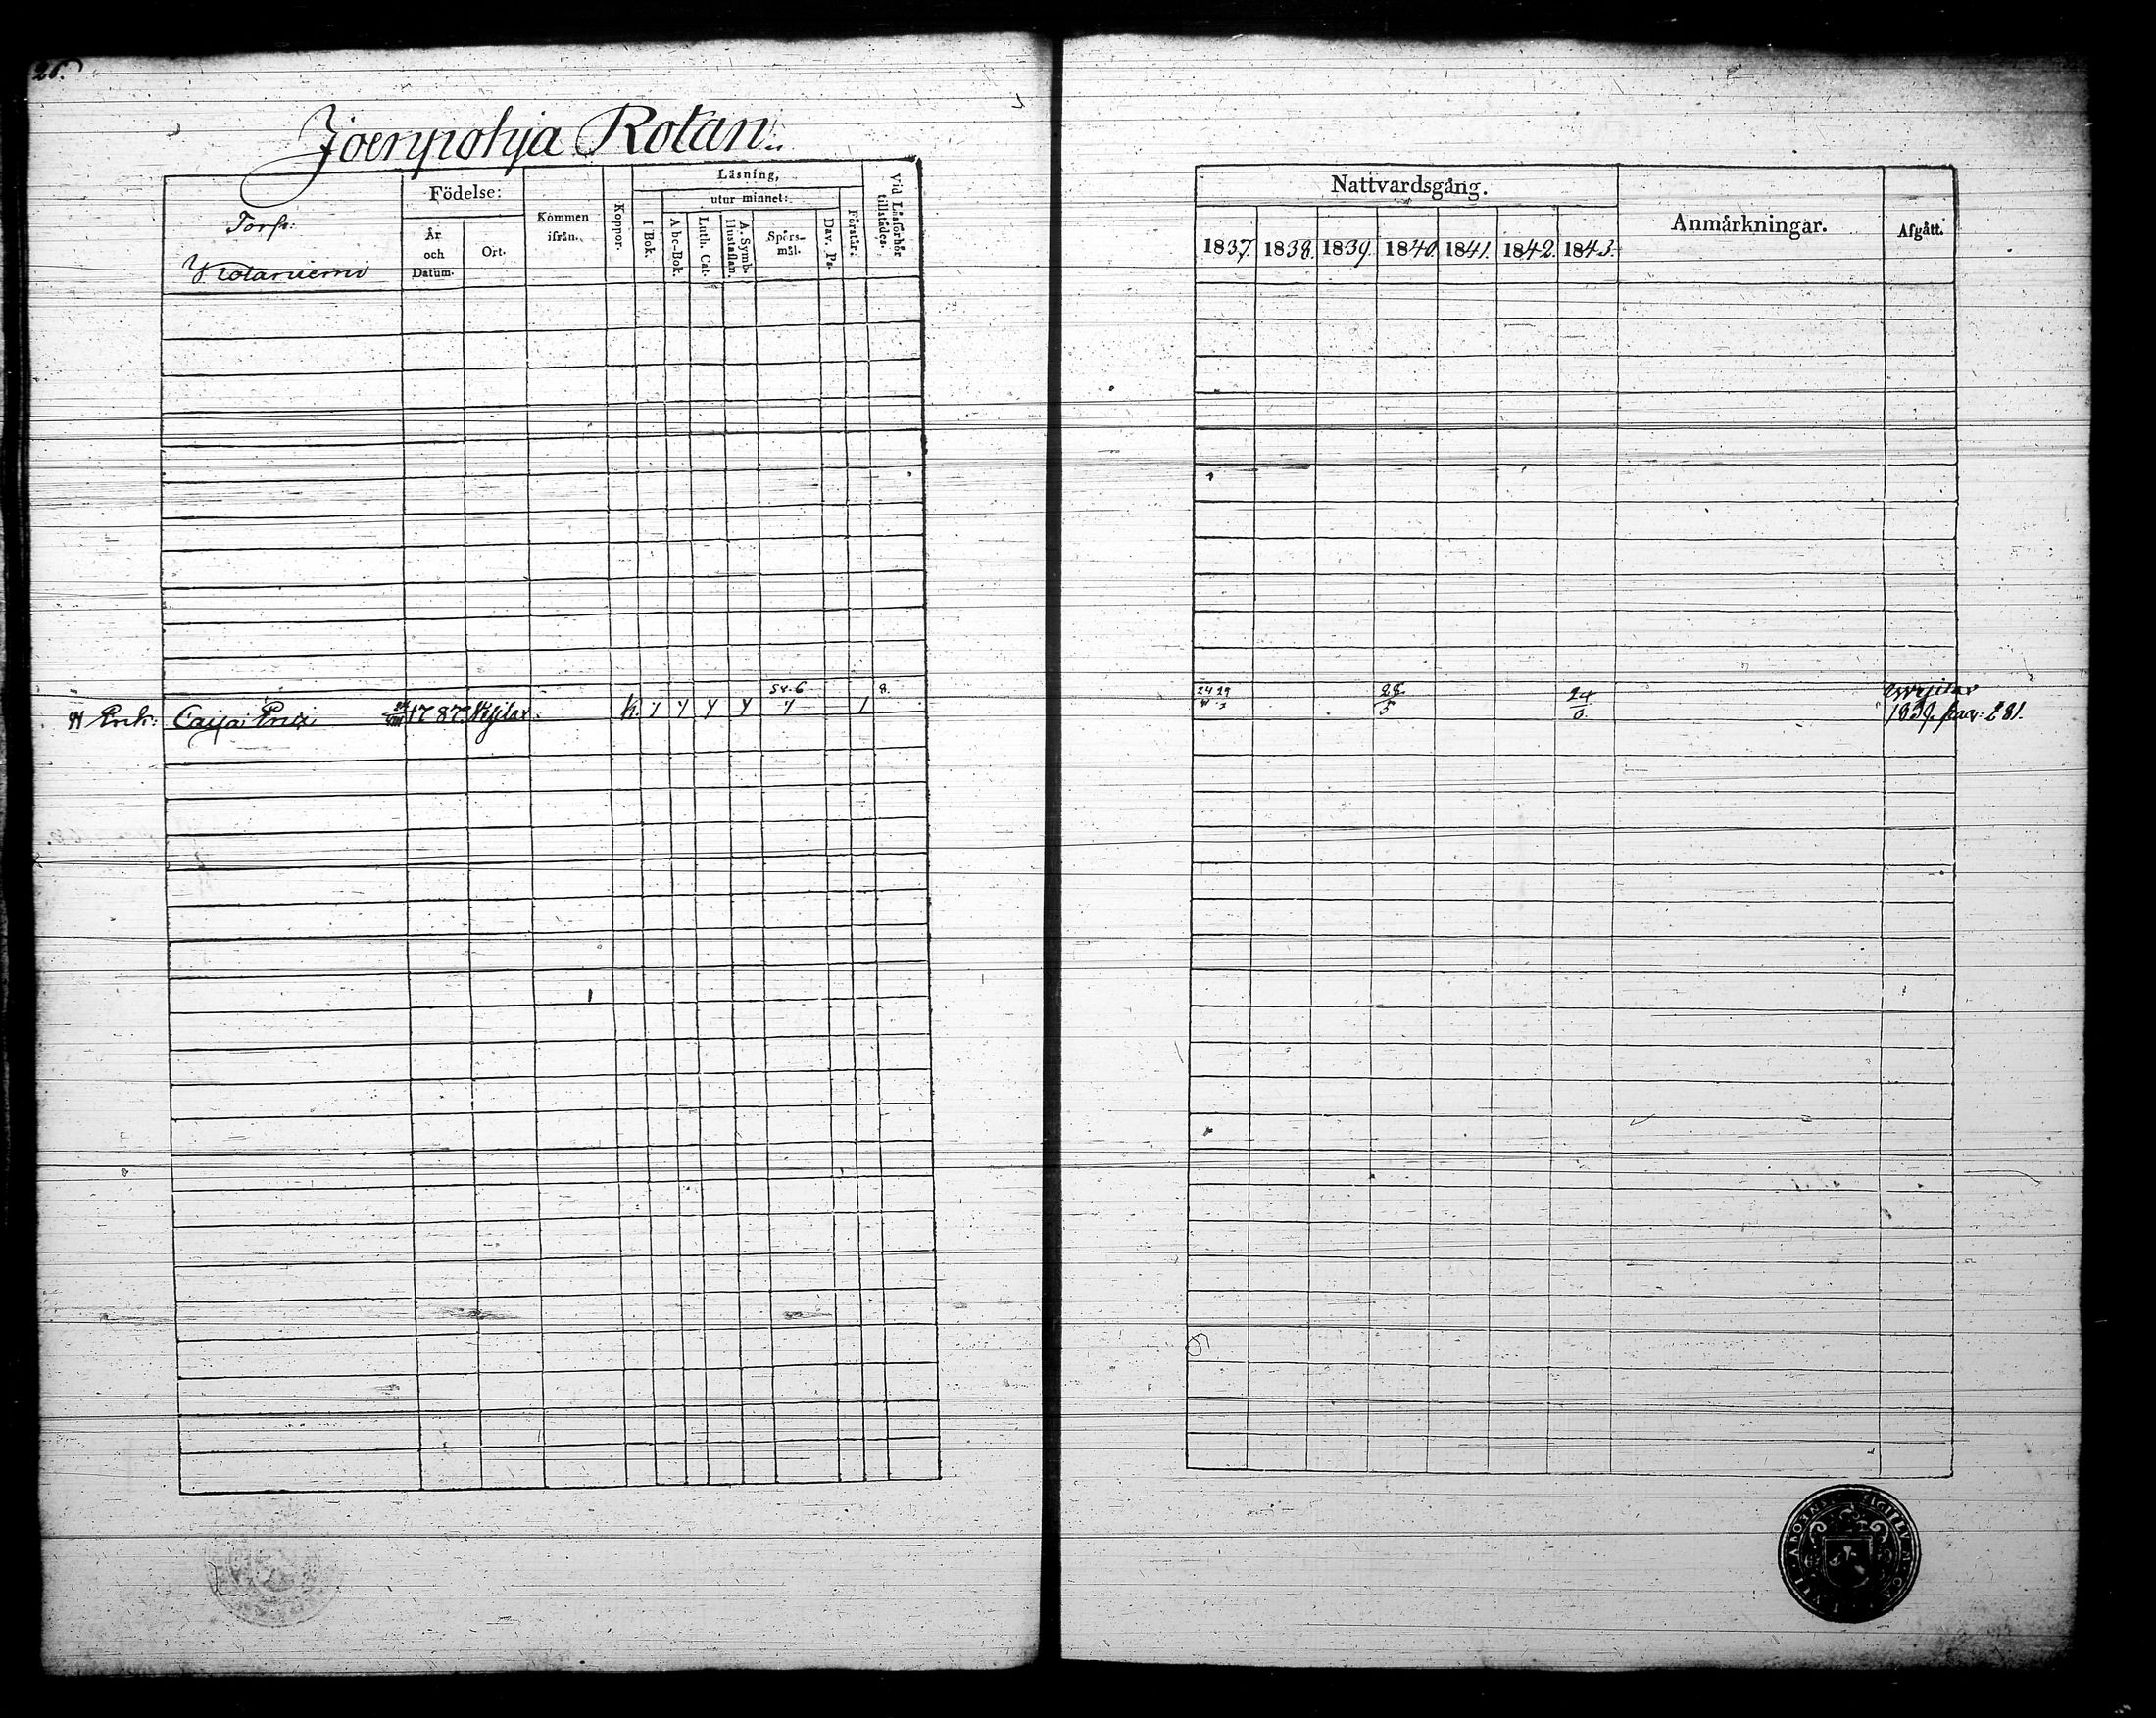 26.
Joenpohja Rotan.
Torp:
Kotaniemi
Födelse:
År
och
Datum.
Ort.
Kommen
ifrån.
Koppor.
Läsning,
utur minnet:
I Bok.
Abc-Bok.
Luth. Cat.
A. Symb.
Hustaflan.
Spörs-
mål.
Dav. Ps.
Förstår:
Vid Läsförhör
tillstädes.
Enk: Caija 1787. k.
Sv. 6
8.
Nattvardsgång.
1837. 1838. 1839. 1840. 1841. 1842. 1843.
Anmärkningar.
Afgått.
24 29
28
5
24
6.
1839. pag: 281.